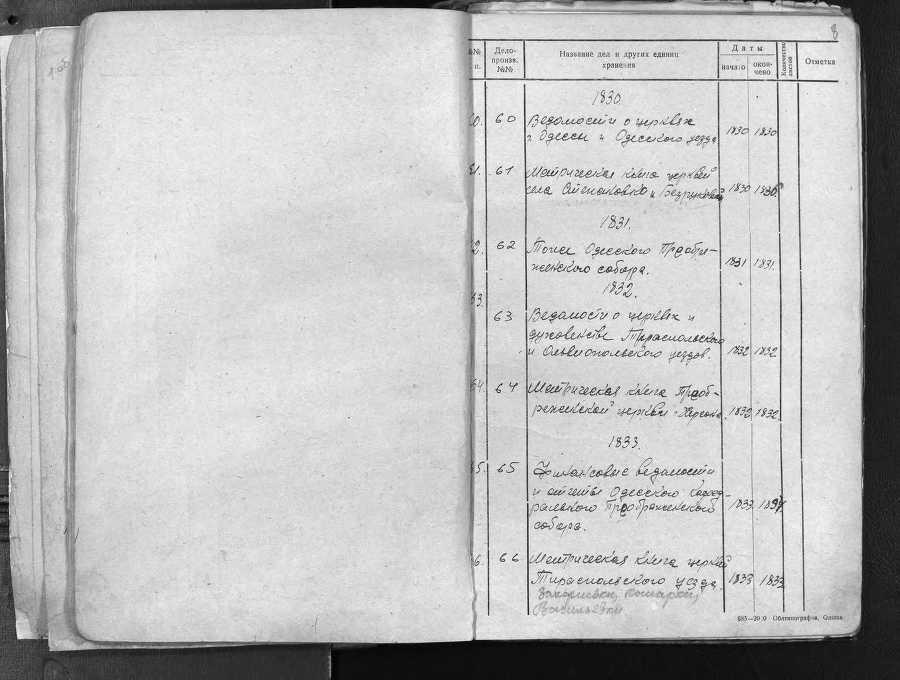 8
№№ п.
Дело-произв. №№
Название дел и других единиц хранения
Даты
начато
окон-чено
Количество листов
Отметка
1830
60. 60 Ведомости о церквях
г. Одессы и Одесского уезда 1830 1830
61. 61 Метрическая книга церквей
села Степановка и 1830 1830
1831.
62. 62 То же Одесского Преобра-
женского собора. 1831 1831.
1832.
63. 63 Ведомости о церквях и
духовенстве Тираспольского
и Ольвиопольского уездов. 1832 1832
64. 64 Метрическая книга Преоб-
раженской церкви г. Херсона 1832 1832
1833.
65. 65 Финансовые ведомости
и отчеты Одесского кафед-
рального Преображенского 1833
собора.
66. 66 Метрическая книга церквей
Тираспольского уезда 1833 1833
Васильевки
Облтипография, Одесса